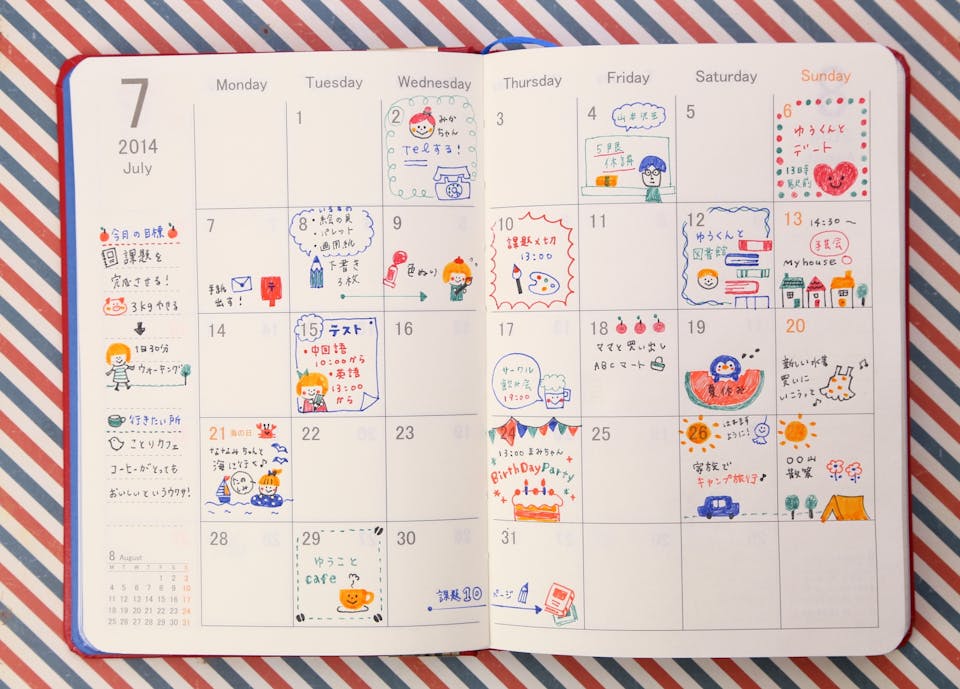 7
2014
July
Monday
Tuesday
Wednesday
Thursday
Friday
Saturday
Sunday
1
2
みか
ちゃん
Telする!
3
4
5限
休講
5
6
ゆうくんと
デート
13日時
駅前
今月の目標
課題を
完成させる!
3kgやせる
1日30分
ウォーキング
行きたい所
ことりカフェ
コーヒーがとっても
おいしいというウワサ!
7
手紙
出す!
〒
8
いるもの
・絵の具
・パレット
・画用紙
下書き
3枚
9
色ぬり
10
課題〆切
13:00
11
12
ゆうくんと
図書館
13
14:30〜
手芸会
Myhouse
14
15
テスト
・中国語
10:00から
・英語
13:00
から
16
17
サークル
飲み会
19:00
18
ママと買い出し
ABCマート
19
夏休み
20
新しい水着
買いに
いこうっと
21
海の日
ななみちゃんと
海に行く♪
たの
しみ
22
23
24
13:00 まみちゃん
BirthDayParty
25
26
はれます
ように!
家族で
キャンプ旅行♪
〇〇山
散策
28
29
ゆうこと
cafe
30
課題10
ページ
31
8 August
M T W T F S S
1 2 3
4 5 6 7 8 9 10
11 12 13 14 15 16 17
18 19 20 21 22 23 24
25 26 27 28 29 30 31